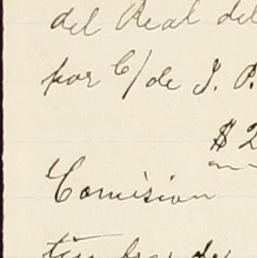 del Real del
por C/de J. P.
$ 2
Comision